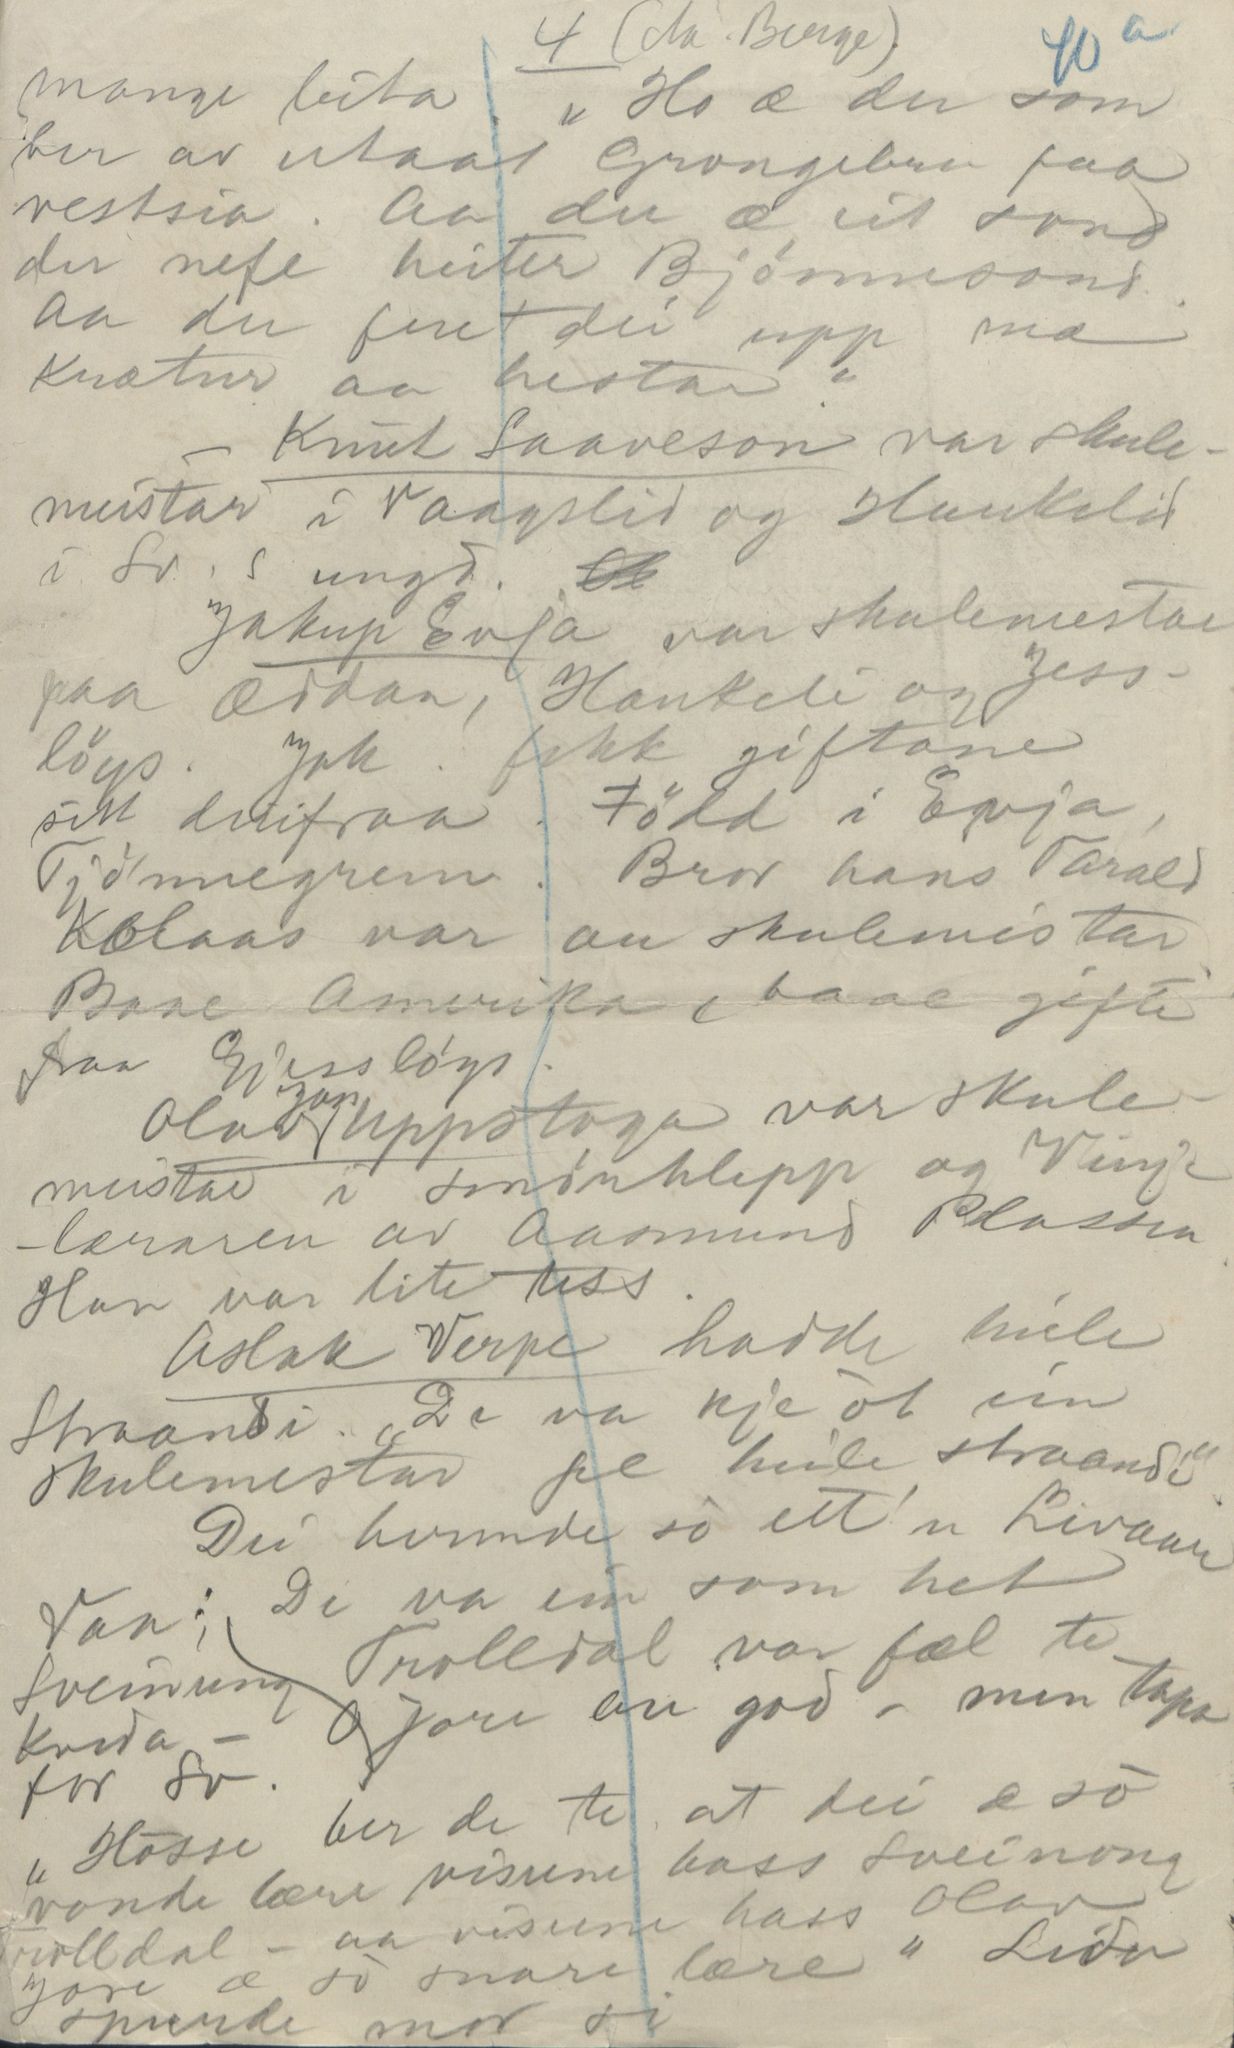 4 (da. Berge).
40 a
mange leita. „Ho æ der som
ber av utaat Grongebru paa
vestsia. Aa der æ eit sond
der nefe heiter Bjönnesond.
Aa der feret dei upp mæ
Krætur aa hestar."
- Knut Saaveson var skule-
meistar i Vaagslid og Haukelid
i Sv. s ungd.
Jakup Evja var skulemestar
paa Ærdan, Haukeli og Jess-
löys. Jak. fekk giftane
sitt deifraa. Född i Evja,
Tjönnegrem. Bror hans Tarald
Kolaas var au skulemeistar
Baae Amerika, baae gifte
fraa Gjesslöys.
Olav Jon Uppstoga var skule-
meistar i Smörklepp og Vinje
- læraren av Aasmund Plassen
Han var lite tess.
Aslak Verpe hadde heile
Straandi. „De va kje öt ein
skulemestar pe heile straandi"
Dei hermde so ett 'n Livaar
Vaa: De va ein som het
Sveinung Trolldal var fæl te
kveda - Jore au god - men tapa
for Sv.
„Hosse ber de te at dei æ so
vonde lære visune hass Sveinong
Trolldal - aa visune hass Olav
Jore æ so snare lære" Lidv
spurde mor si